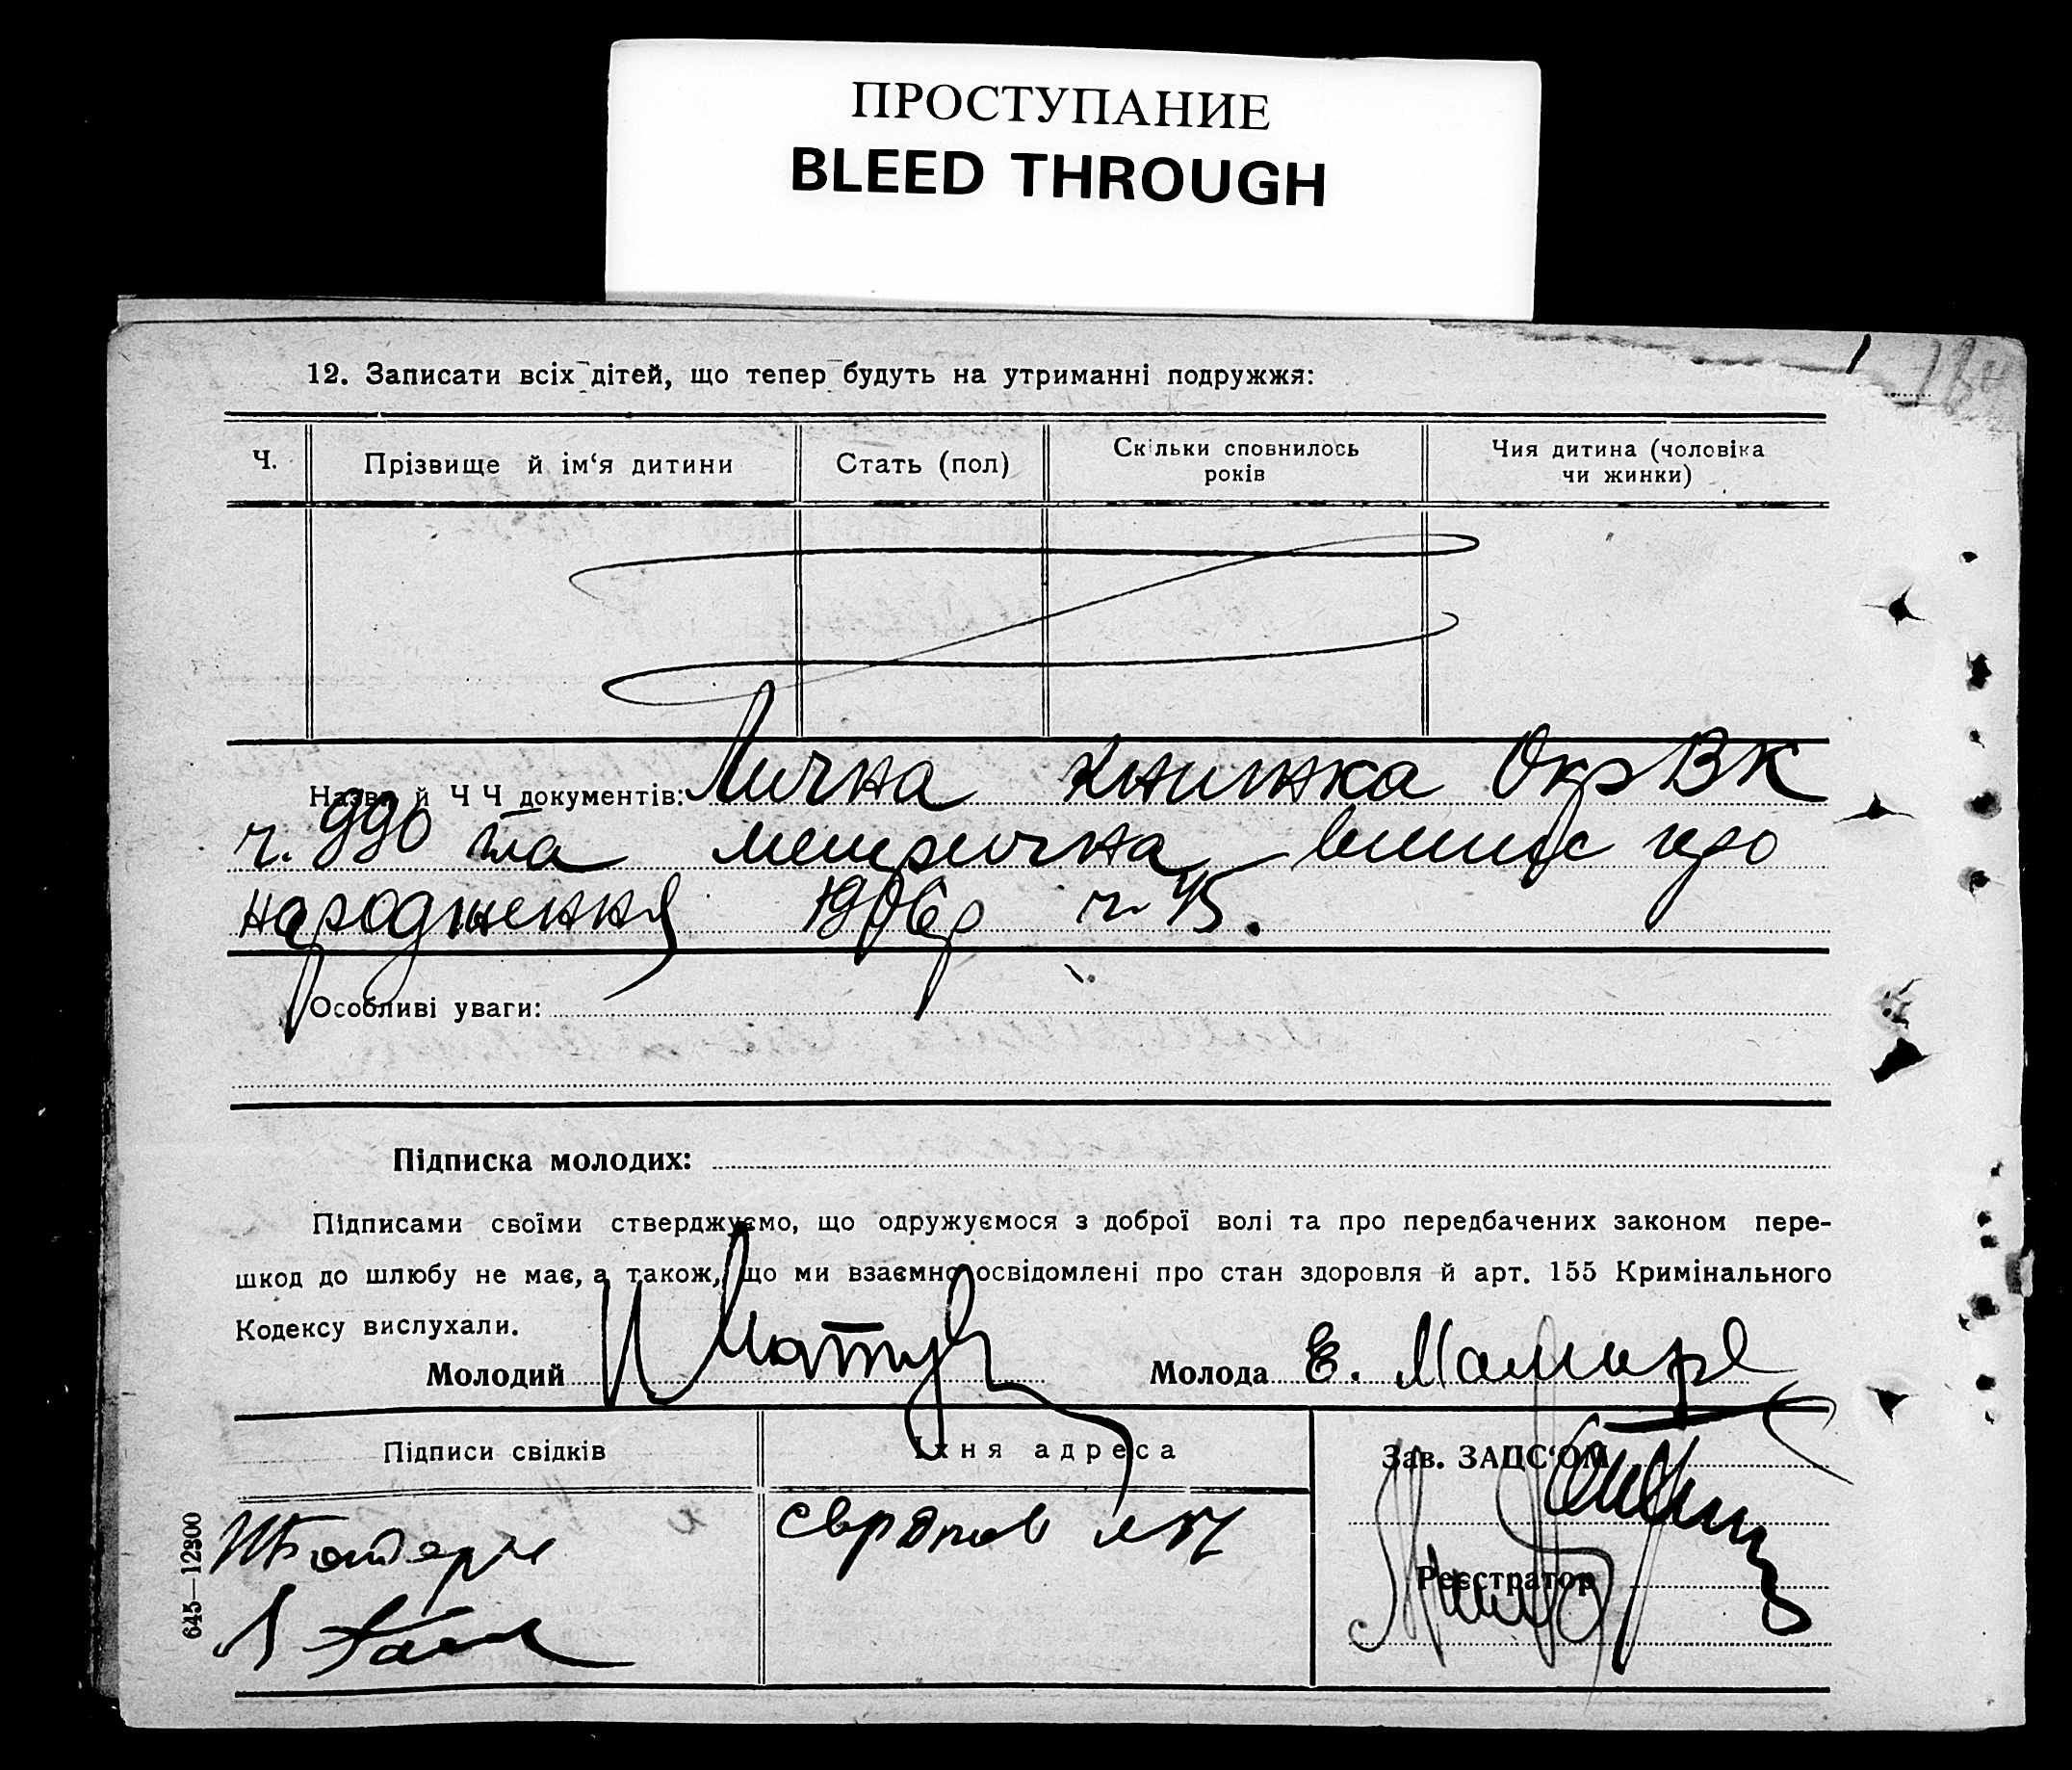 ПРОСТУПАНИЕ
BLEED THROUGH
12. Записати всіх дітей, що тепер будуть на утриманні подружжя:
Ч.
Прізвище й ім‘я дитини
Стать (пол)
Скільки сповнилось
років
Чия дитина (чоловіка
чи жинки)
Назва й Ч Ч документів: Лична книжка ОкрВК
ч. 990 та метрична випис про
народження 1906р ч 45.
Особливі уваги:
Підписка молодих:
Підписами своїми стверджуємо, що одружуємося з доброї волі та про передбачених законом пере-
шкод до шлюбу не має, а також, що ми взаємно освідомлені про стан здоровля й арт. 155 Кримінального
Кодексу вислухали.
Молодий
Молода Е.
Підписи свідків
Їхня адреса
Зав. ЗАЦС‘ОМ
Реєстратор
645—12300